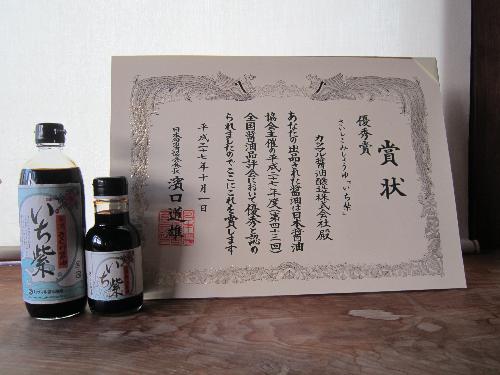 賞状
優秀賞
さいしこみしょうゆ「いち紫」
カジマル醤油醸造株式会社殿
あなたの出品された醤油は日本醤油
協会主催の平成二十七年度(第四十三回)
全国醤油品評会において優秀と認め
られましたのでここにこれを賞します
平成二十七年十月一日
日本醤油協会会長 濱口道雄
いち紫
いち紫